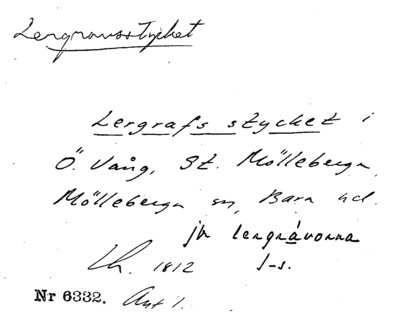 Lergravsstycket
Lergrafs stycket i
Ö. Vång, St. Mölleberga,
Mölleberga sn, Bara hd.
jfr lergrávorna
Lh. 1812 s-s.
Nr 6332. Akt 1.